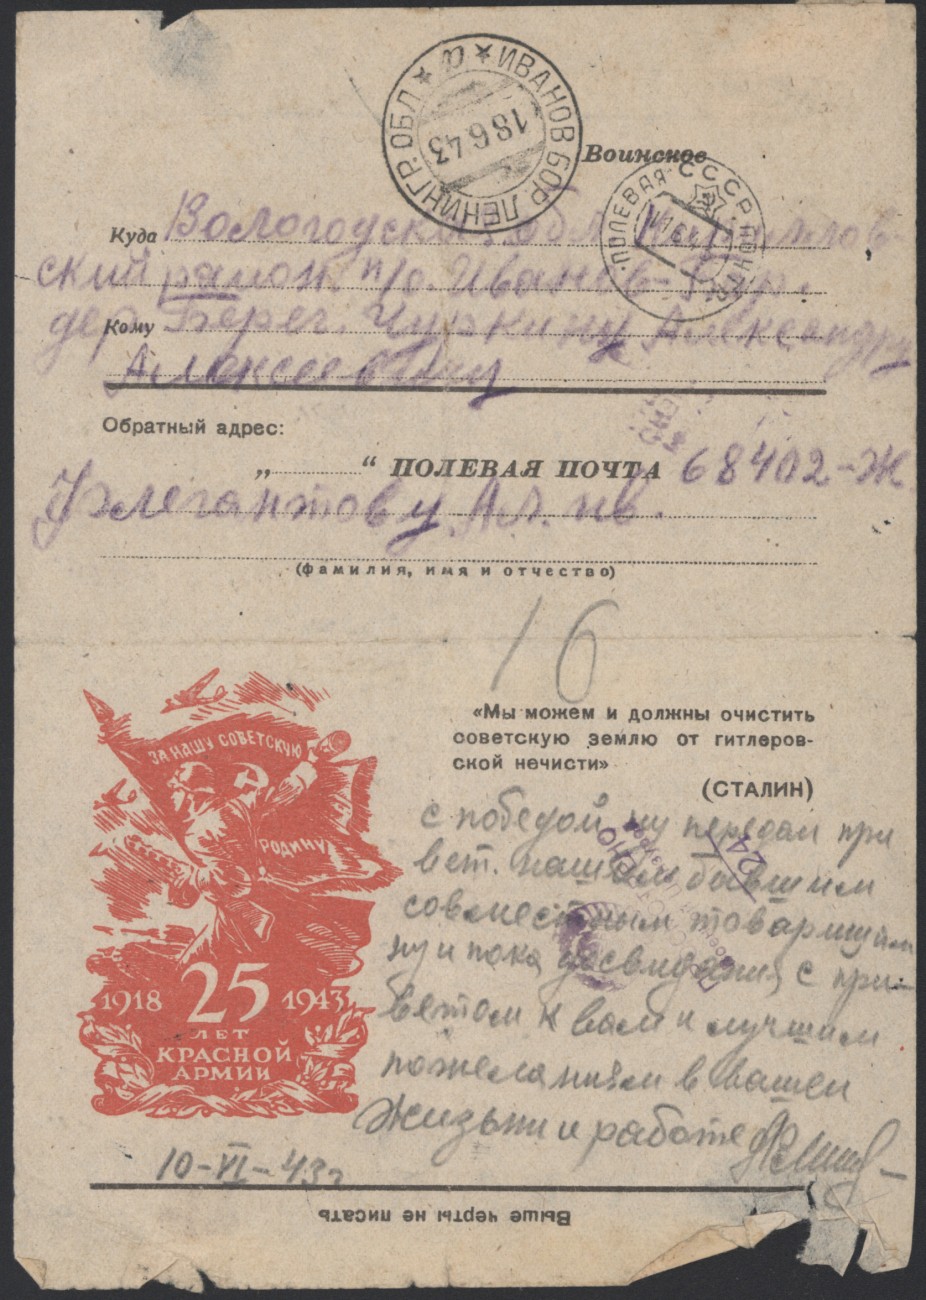 ИВАНОВ БОР ЛЕНИНГР. ОБЛ
18 6 43
Воинское
ПОЛЕВАЯ СССР
Куда Вологодская обл Кириллов-
ский район п/о. Иванов-Бор.
Кому дер Берег. Чуркину Александру
Алексеевичу
Обратный адрес:
„ “ ПОЛЕВАЯ ПОЧТА 68402-Ж
Флегантову Ал. ив.
(фамилия, имя и отчество)
16
«Мы можем и должны очистить
советскую землю от гитлеров-
ской нечисти»
(СТАЛИН)
ЗА НАШУ СОВЕТСКУЮ
РОДИНУ
1918 25 1943
ЛЕТ
КРАСНОЙ
АРМИИ
с победой ну передай при
вет. нашим бывшим
совместным товарищам
ну и пока досвидания, с при-
ветом к вам и лучшим
пожеланием в вашей
жизьни и работе
24
10-VI-43г
Выше черты не писать